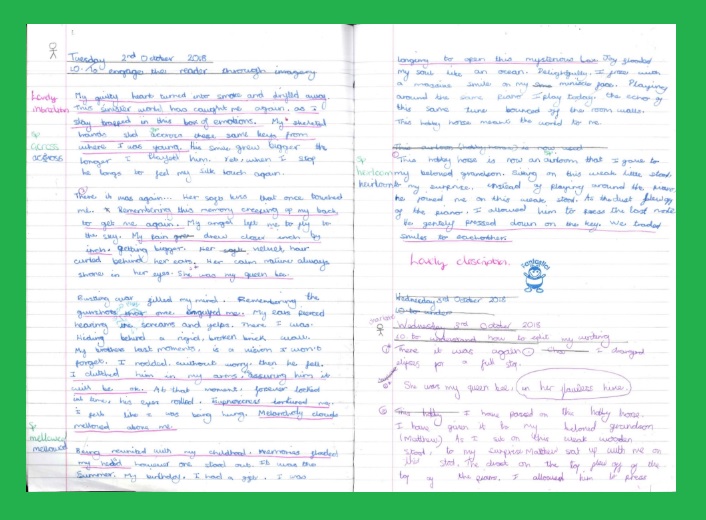 Tuesday 2nd October 2018
LO: To engage the reader through imagery
Lovely
My guilty heart turned into smoke and drifted away.
This sinister world has caught me again, as I
stay trapped in this box of emotions. My skilful
hands slid accross these same keys from
sp
across
accross
where I was young, his smile grew bigger the
longer I played him. Yet, when I stop
he longs to feel my silk touch again.
There it was again... Her soya kiss that once touched
me. Remembering this memory creeping up my back
to get me again. My angel left me to fly to
the sky. My pain grew drew closer inch by
inch, getting bigger. Her velvet hair
curled behind her ears. Her calm nature always
shone in her eyes. She was my queen bee.
Bursting war filled my mind. Remembering the
gunshots that once engulfed me. My ears pierced
hearing the screams and yelps. There I was.
Hiding behind a rigid, broken brick wall.
My brothers last moments, is a vision I won't
forget. I nodded, without worry, then he fell.
I clutched him in my arms, assuring him it
will be ok. At that moment, forever locked
in time, his eyes rolled. tortured me.
I felt like I was being hung. Melancholy clouds
mellowed above me.
sp
mellowed
mellowed
Being reunited with my childhood. Memories flooded
my head however one stood out. It was the
Summer. My birthday. I had a gift. I was
longing to open this mysterious box. Joy flooded
my soul like an ocean. Delightfully, I press with
a massive smile on my face. Playing
around the same piano I play today. the echo of
the same tune bounced of the room walls.
This hobby horse means the world to me.
sp
heirloom
heirloom
This hobby horse is now an airloom that I gave to
my beloved grandson. Sitting on this weak little stool
to my surprise, instead of playing around the piano,
he joined me on this weak stool. As the dust flew off
of the pianor, I allowed him to press the last note
he gentley pressed down on the key. We traded
smiles to eachother.
Lovely description.
fantastic
Wednesday 3rd October 2018
LO to under
Wednesday 3rd October 2018
LO to understand how to edit my writing
① There it was again. I changed
elipsis for a full stop.
She was my queen bee, in her flawless hive.
This hobby I have passed on the hobby horse.
I have given it to my beloved grandson
(Matthew) As I sit on this weak wooden
stool, to my surprise Matthew sat up with me on
this stool. The dust on the top flew off of the
top of the piano, I allowed him to press